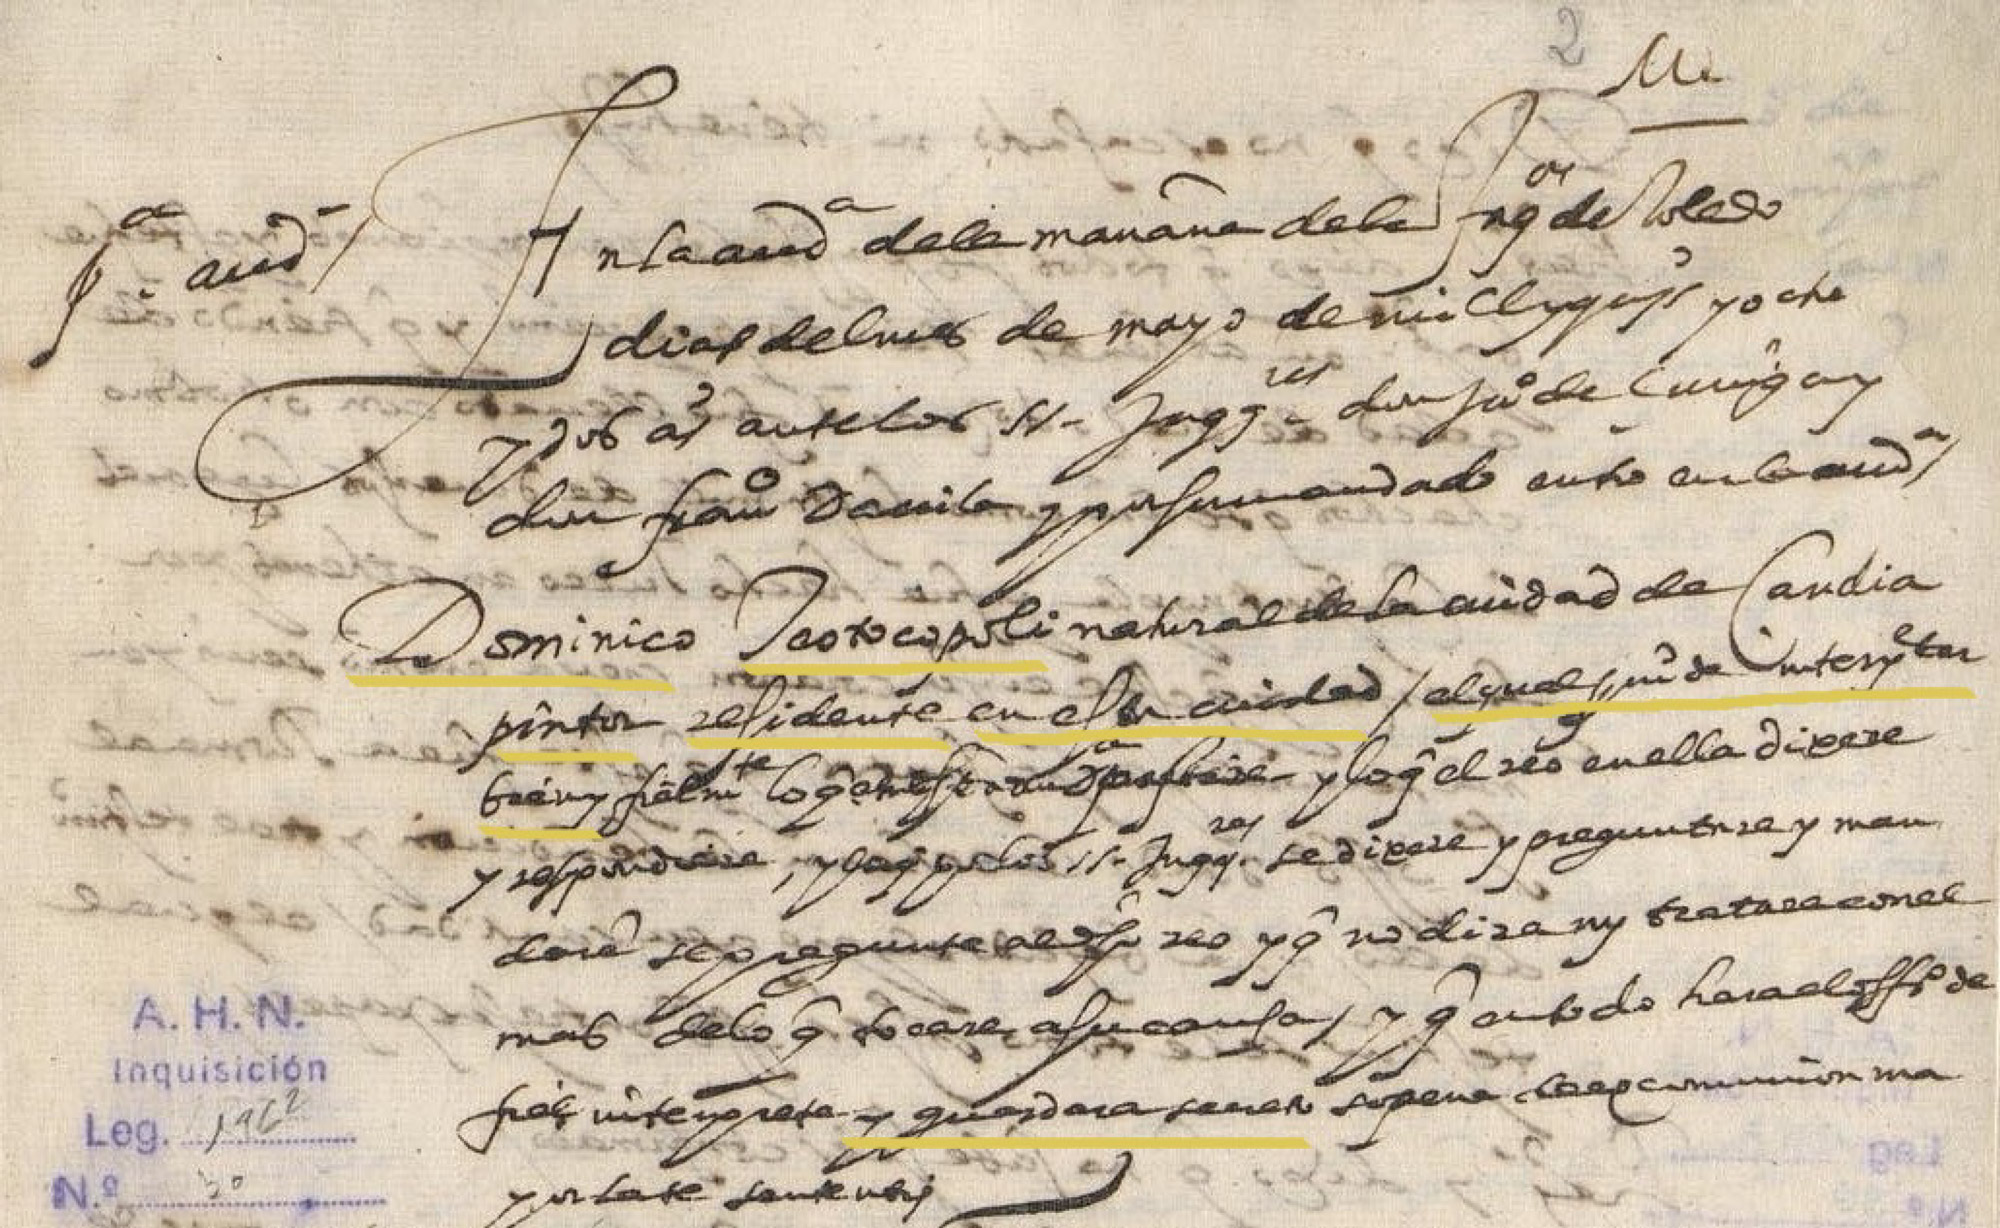 2
Me
p.ª aud.ª En la aud.ª de la mañana de la Inq.on de Toledo
dias del mes de mayo de mill y quis y ocho
y dos a.s ante los ss. Inqq.res don Ju.o de Cuñiga y
don fran.co Davila y por su mandado entro en la aud.ª
Dominico Teotocopoli natural de la ciudad de Candia
pintor residente en esta ciudad / el qual juró de interpretar
bien y fielm.te lo q en esta aud.ª y lo q el reo en ella dixere
y respondiere, y lo q por los ss. Inqq.res se dixere y preguntare y man
daren se pregunte al dho reo y q no dira ny tratara con el
mas de lo q tocare a su causa / y q en todo hara el offi.o de
fiel interprete y guardara secreto sopena de excomunion ma
yor late sententie
A. H. N.
Inquisición
Leg. 196²
N.º 30